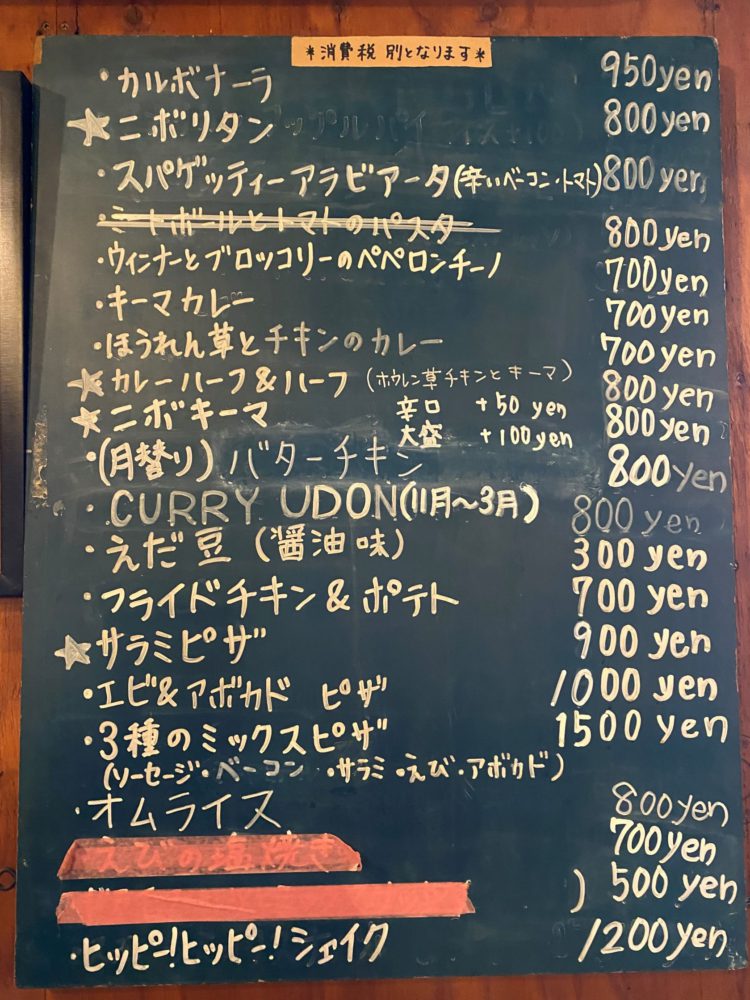 *消費税 別となります*
・カルボナーラ 950yen
☆ニボリタン 800yen
・スパゲッティーアラビアータ(辛いベーコン・トマト) 800yen
ミートボールとトマトのパスタ 800yen
・ウィンナーとブロッコリーのペペロンチーノ 700yen
・キーマカレー 700yen
・ほうれん草とチキンのカレー 700yen
☆カレーハーフ&ハーフ (ホウレン草チキンとキーマ) 800yen
☆ニボキーマ 辛口 +50 yen 800yen
大盛 +100yen
・(月替り) バターチキン 800yen
・CURRY UDON(11月〜3月) 800 yen
・えだ豆 (醤油味) 300 yen
・フライドチキン & ポテト 700 yen
☆サラミピザ 900 yen
・エビ&アボカド ピザ 1000 yen
・3種のミックスピザ 1500 yen
(ソーセージ・ベーコン・サラミ・えび・アボカド)
・オムライス 800yen
えびの塩焼き 700yen
) 500 yen
・ヒッピー!ヒッピー!シェイク 1200yen